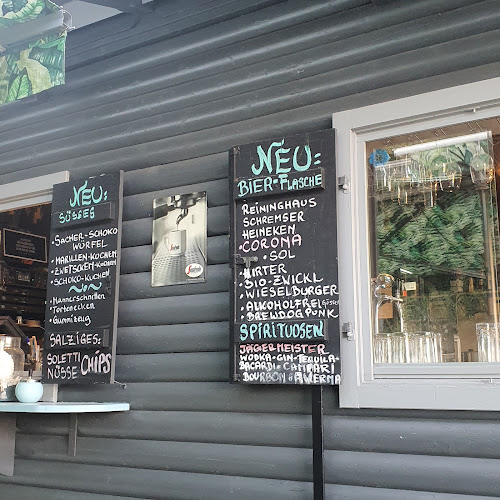 NEU:
SÜSSES
• SACHER-SCHOKO
WÜRFEL
• MARILLEN-KUCHEN
• ZWETSCKEN-KUCHEN
• SCHOKO-KUCHEN
• Mannerschnitten
Tortenecken
• Gummizeug
SALZIGES:
SOLETTI CHIPS
NÜSSE
NEU:
BIER-FLASCHE
REININGHAUS
SCHREMSER
HEINEKEN
• CORONA
• SOL
• HIRTER
• BIO-ZWICKL
• WIESELBURGER
• ALKOHOLFREI
• BREWDOG PUNK
SPIRITUOSEN
JÄGERMEISTER
WODKA-GIN-TEQUILA-
BACARDI-CAMPARI
BOURBON-AVERNA